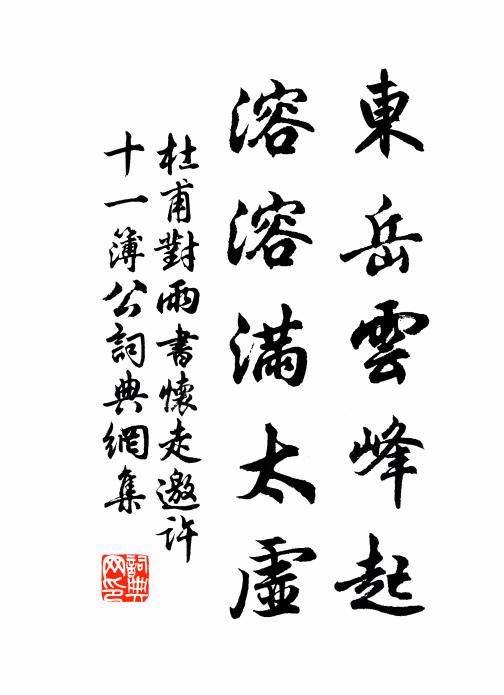 東岳雲峰起
溶溶滿太虛
杜甫對雨書懷走邀許
十一簿公詞典網集
詞典
网印